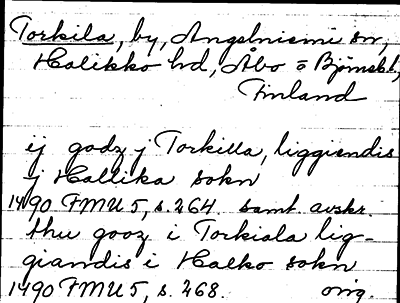 Torkila, by, Angelniemi sn,
Halikko hd, Åbo o Björnebl,
Finland
ij godz j Torkilla, liggiandis
j Hallika sokn
1490 FMU 5, s. 264 samt. avskr.
thu gooz i Torkiala lig-
giandis i Halko sokn
1490 FMU 5, s. 268. orig.